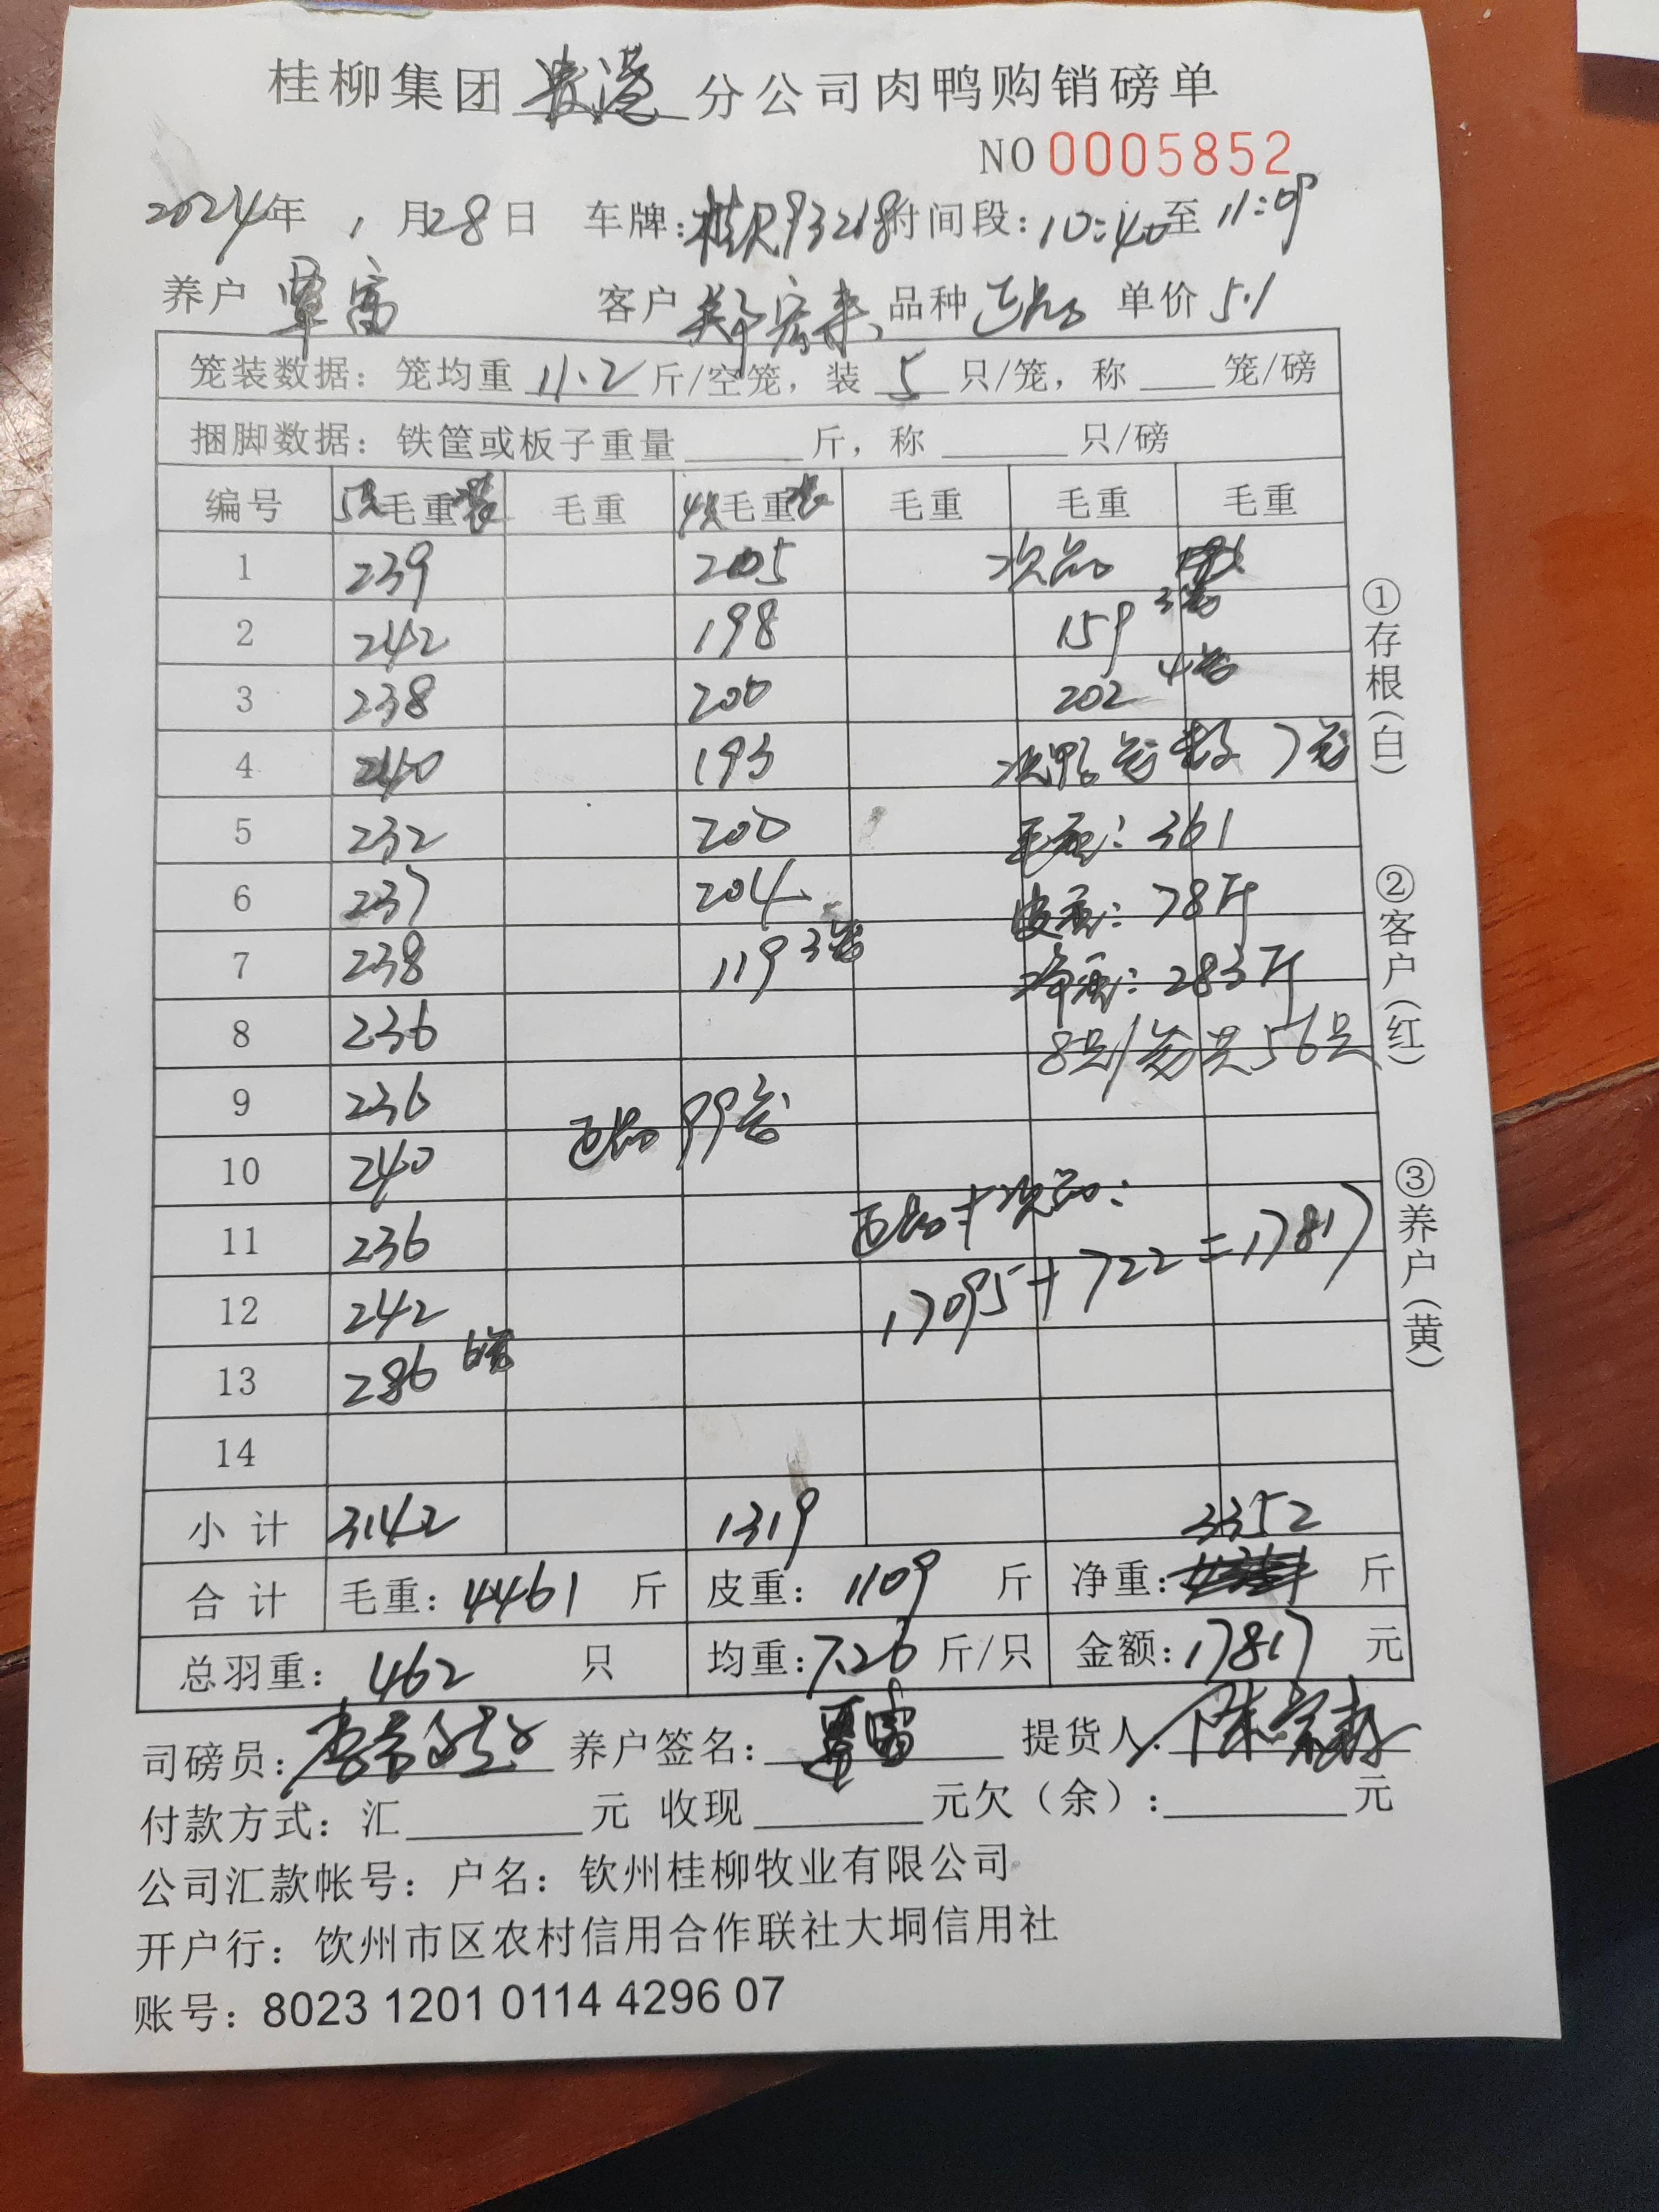 桂柳集团 贵港 分公司肉鸭购销磅单
NO 0005852
2024年 1月28日 车牌:桂R93218 时间段:10:40至11:09
养户 覃富 客户 郑宏来 品种 正品 单价 5.1
笼装数据：笼均重 11.2 斤/空笼，装 5 只/笼，称 ____ 笼/磅
捆脚数据：铁筐或板子重量______斤，称______只/磅
编号 5只毛重装 毛重 4只毛重装 毛重 毛重 毛重
1 239 205 次品
2 242 198 159 3笼
3 238 200 202 4笼
4 240 193 次鸭笼 7笼
5 232 200 毛重:361
6 237 204 皮重:78斤
7 238 119 3笼 净重:283斤
8 236 8只/笼共56只
9 236 正品 99笼
10 240
11 236 正品+次品:
12 242 17095+722=17817
13 286 6笼
14
小计 3142 1319 3352
合计 毛重：4461 斤 皮重：1109 斤 净重： 斤
总羽重：462 只 均重:7.26 斤/只 金额:17817 元
司磅员: 养户签名: 覃富 提货人:
付款方式：汇______元 收现______元欠（余）:______元
公司汇款帐号：户名：钦州桂柳牧业有限公司
开户行：饮州市区农村信用合作联社大垌信用社
账号：8023 1201 0114 4296 07
①存根(白)
②客户(红)
③养户(黄)